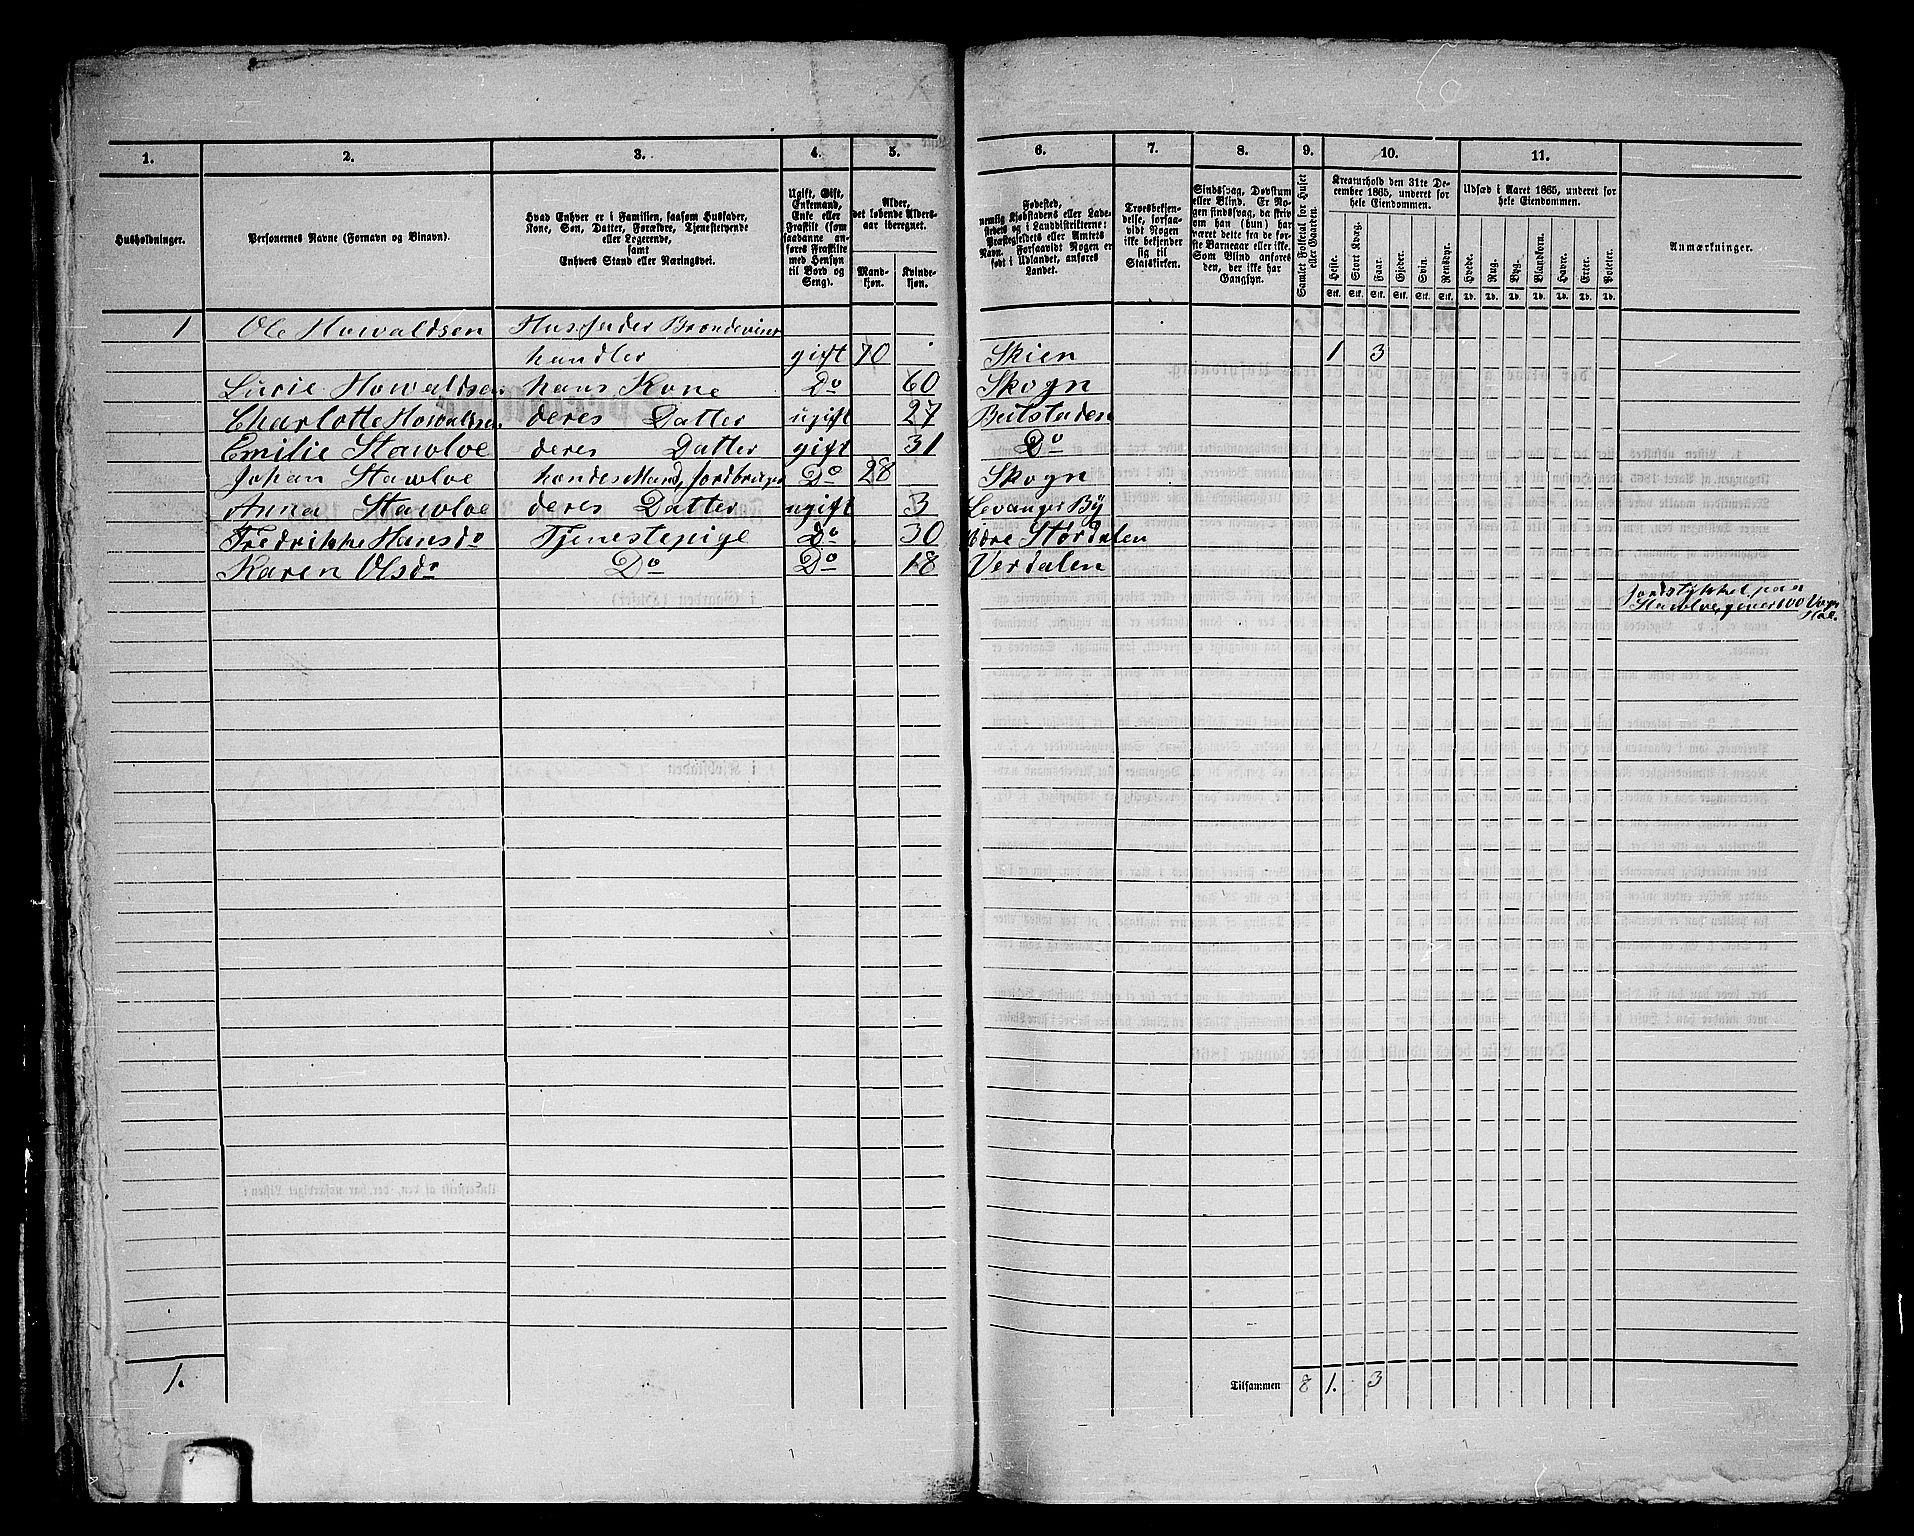 1. 2. 3. 4. 5. 6. 7. 8. 9. 10. 11.
Husholdninger.
Personernes Navne (Fornavn og Binavn).
Hvad Enhver er i Familien, saasom Husfader,
Kone, Søn, Datter, Forældre, Tjenestetyende
eller Logerende,
samt
Enhvers Stand eller Næringsvei.
Ugift, Gift,
Enkemand,
Enke eller
Fraskilt (som
saadanne an-
føres Fraskilte
med Hensyn
til Bord og
Seng).
Alder,
det løbende Alders-
aar iberegnet.
Mand-
kjøn.
Kvinde-
kjøn.
Fødested,
nemlig Kjøbstadens eller Lade-
stedets og i Landdistrikterne:
Præstegjeldets eller Amtets
Navn. Forsaavidt Nogen er
født i Udlandet, anføres
Landet.
Troesbekjen-
delse, forsaa-
vidt Nogen
ikke bekjender
sig til
Statskirken.
Sindssvag, Døvstum
eller Blind. Er No-
gen sindssvag, da skriv
om han (hun) har
været dette fra de før-
ste Barneaar eller ikke.
Som Blind anføres
den, der ikke har
Gangsyn.
Samlet Folketal for Huset
eller Gaarden.
Kreaturhold den 31te De-
cember 1865, underet for
hele Eiendommen.
Heste. Stort Kvæg. Faar. Gjeder. Svin. Rensdyr.
Stk. Stk. Stk. Stk. Stk. Stk.
Udsæd i Aaret 1865, underet for
hele Eiendommen.
Hvede. Rug. Byg. Blandkorn. Havre. Erter. Poteter.
Td. Td. Td. Td. Td. Td. Td.
Anmærkninger.
1 Ole Howaldsen Husfader Brændeviins
handler gift 70 Skien 1 3
Lucie Howaldsen hans Kone Do 60 Skogn
Charlotte Howaldsen deres Datter ugift 27 Beitstaden
Emilie Hawloe deres Datter gift 31 Do
Johan Hawloe hendes Mand, Jordbruger Do 28 Skogn
Anna Hawloe deres Datter ugift 3 Levanger By
Fredrikke Hansdo Tjenestepige Do 30 Stordalen
Karen Olsdo Do Do 18 Verdalen
Jordstykket paa
Hawloe, giver 100
1. Tilsammen 8 1. 3